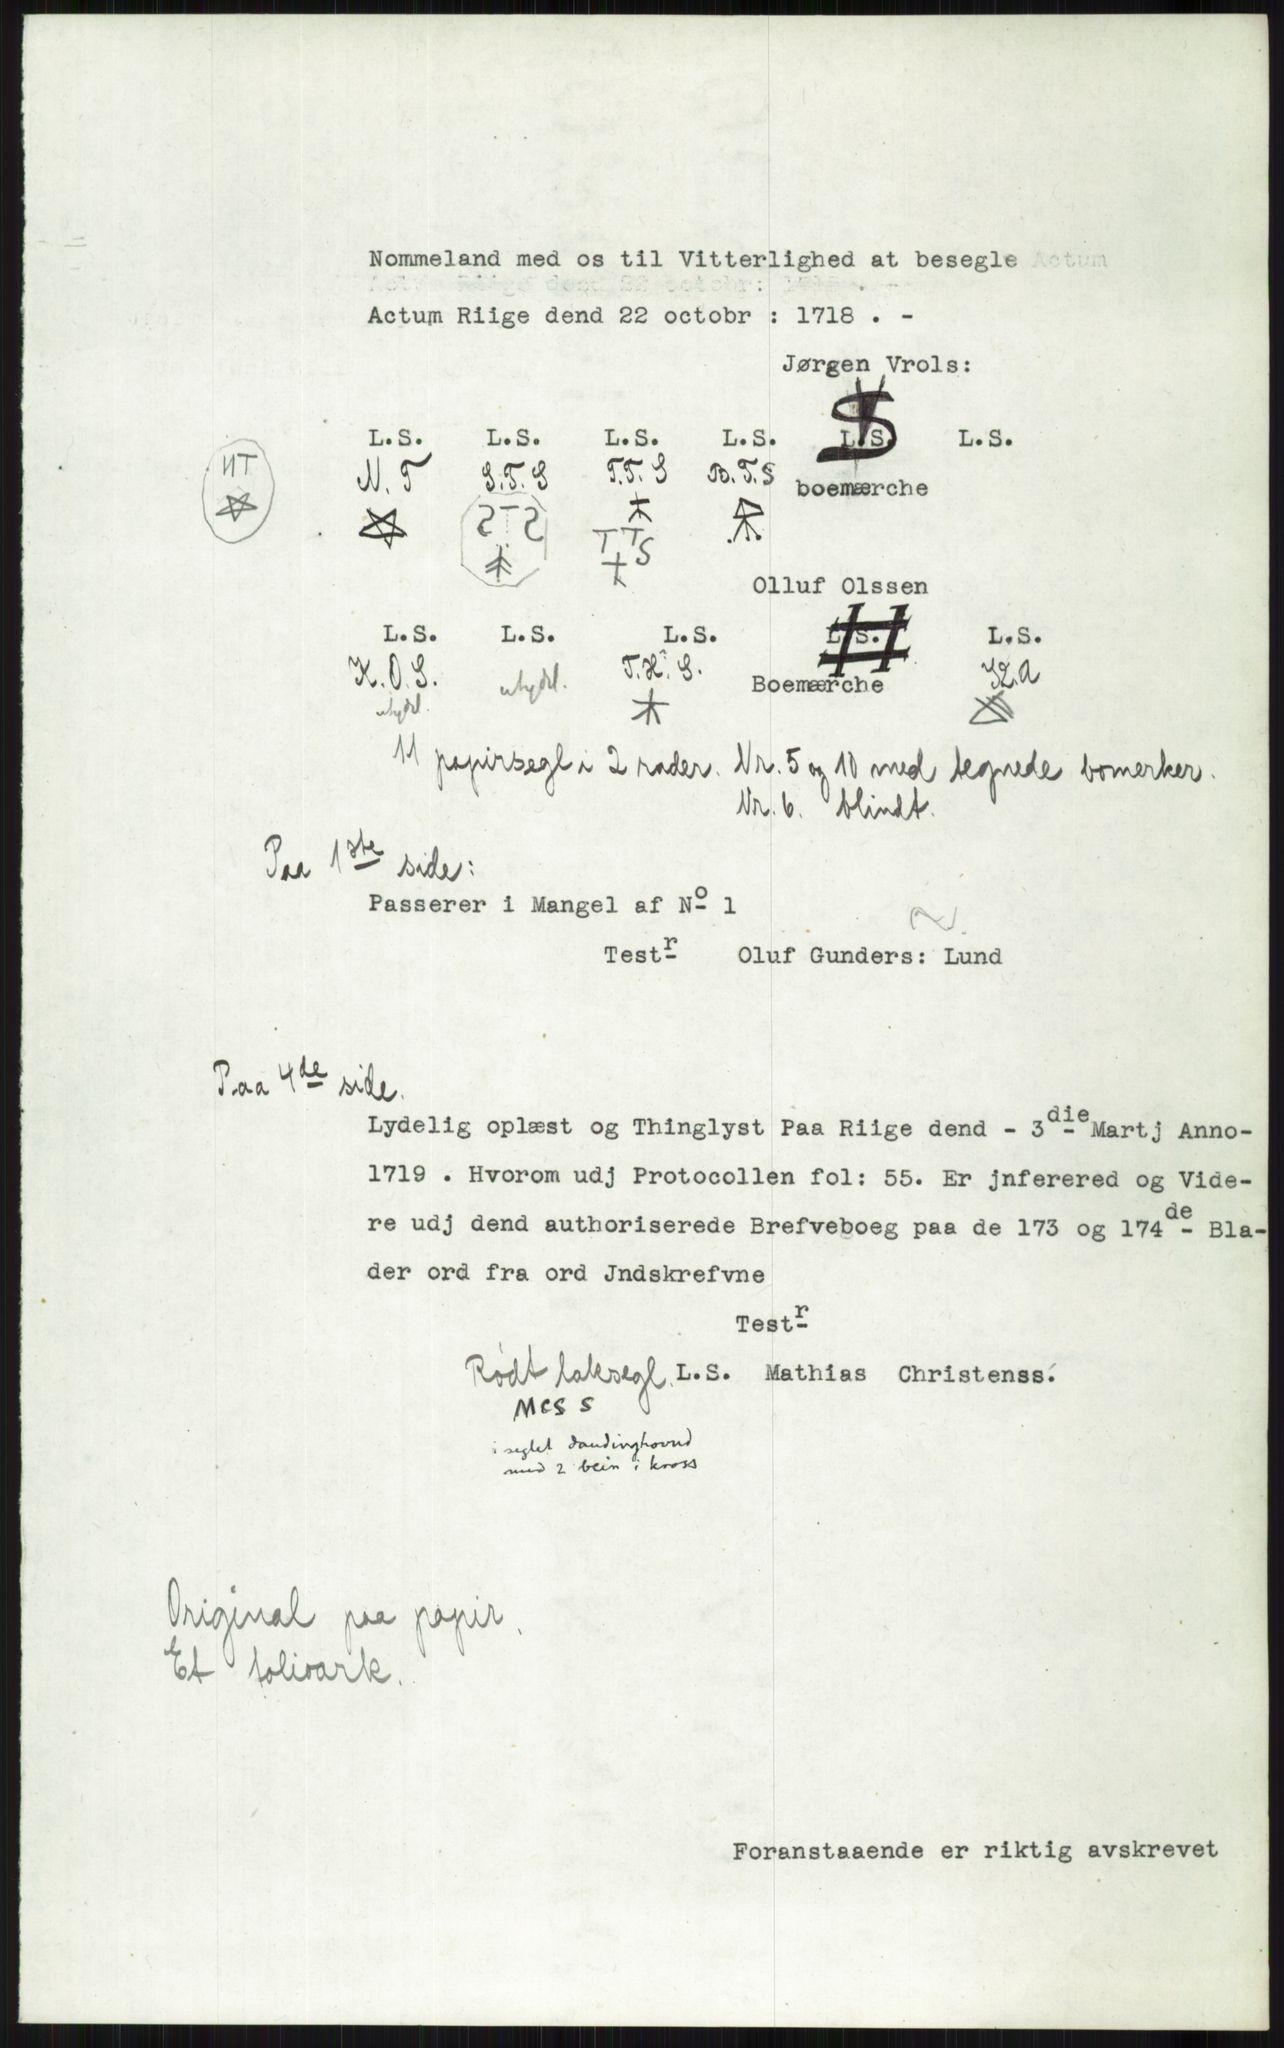 Nommeland med os til Vitterlighed at besegle Actum
Actum Riige dend 22 octobr: 1718 . -
Actum Riige dend 22 octobr : 1718 . -
Jørgen Vrols:
L.S. L.S. L.S. L.S. L.S. L.S.
NT N. T S.T.S T.T.S B.T.S boemærche
STS TTS
Olluf Olssen
L.S. L.S. L.S. L.S. L.S.
K.O.S. utydel. T.H. S. Boemærche
utydel.
11 papirsegl i 2 rader. Nr. 5 og 10 med tegnede bomerker.
Nr. 6. blindt.
Paa 1ste side:
Passerer i Mangel af No 1
Testr Oluf Gunders: Lund
Paa 4de side.
Lydelig oplæst og Thinglyst Paa Riige dend - 3die Martj Anno-
1719 . Hvorom udj Protocollen fol: 55. Er jnferered og Vide-
re udj dend authoriserede Brefveboeg paa de 173 og 174de Bla-
der ord fra ord Jndskrefvne
Testr
Rødt laksegl. L.S. Mathias Christenss.
MCS S
i seglet daudinghovud
med 2 bein i kross
Original paa papir.
Et folioark.
Foranstaaende er riktig avskrevet